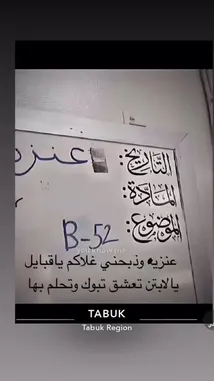 التاريخ: عنزيه
المادة:
الموضوع: B-52
عنزيه وذبحني غلاكم ياقبايل
يالابتن تعشق تبوك وتحلم بها
TABUK
Tabuk Region